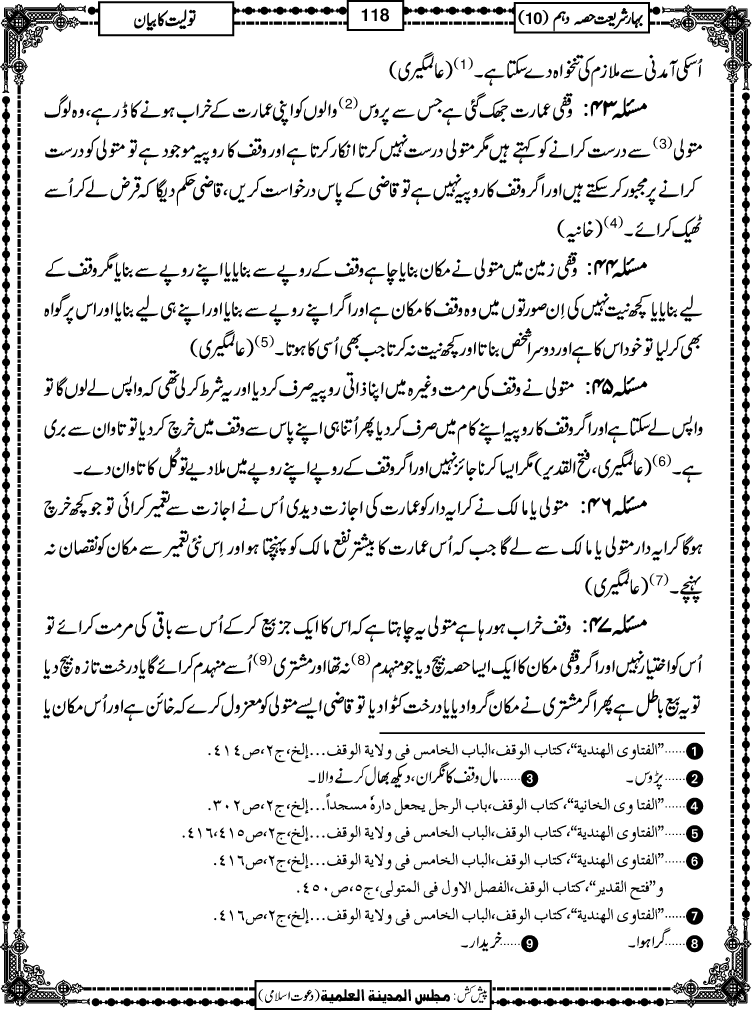 بہارشریعت حصہ دہم (10)
118
تولیت کا بیان
اُسکی آمدنی سے ملازم کی تنخواہ دے سکتا ہے۔(1) (عالمگیری)
مسئلہ ۴۳: وقفی عمارت جھک گئی ہے جس سے پروس(2) والوں کو اپنی عمارت کے خراب ہونے کا ڈر ہے، وہ لوگ
متولی(3) سے درست کرانے کو کہتے ہیں مگر متولی درست نہیں کرتا انکار کرتا ہے اور وقف کا روپیہ موجود ہے تو متولی کو درست
کرانے پر مجبور کرسکتے ہیں اور اگر وقف کا روپیہ نہیں ہے تو قاضی کے پاس درخواست کریں، قاضی حکم دیگا کہ قرض لے کر اُسے
ٹھیک کرائے۔(4) (خانیہ)
مسئلہ ۴۴: وقفی زمین میں متولی نے مکان بنایا چاہے وقف کے روپے سے بنایا یا اپنے روپے سے بنایا مگر وقف کے
لیے بنایا یا کچھ نیت نہیں کی اِن صورتوں میں وہ وقف کا مکان ہے اور اگر اپنے روپے سے بنایا اور اپنے ہی لیے بنایا اور اس پر گواہ
بھی کرلیا تو خود اس کا ہے اور دوسرا شخص بناتا اور کچھ نیت نہ کرتا جب بھی اُسی کا ہوتا۔(5) (عالمگیری)
مسئلہ ۴۵: متولی نے وقف کی مرمت وغیرہ میں اپنا ذاتی روپیہ صرف کردیا اور یہ شرط کرلی تھی کہ واپس لے لوں گا تو
واپس لے سکتا ہے اور اگر وقف کا روپیہ اپنے کام میں صرف کردیا پھر اُتنا ہی اپنے پاس سے وقف میں خرچ کردیا تو تاوان سے بری
ہے۔(6) (عالمگیری، فتح القدیر) مگر ایسا کرنا جائز نہیں اور اگر وقف کے روپے اپنے روپے میں ملادیے تو کُل کا تاوان دے۔
مسئلہ ۴۶: متولی یا مالک نے کرایہ دار کو عمارت کی اجازت دیدی اُس نے اجازت سے تعمیر کرائی تو جو کچھ خرچ
ہوگا کرایہ دار متولی یا مالک سے لے گا جب کہ اُس عمارت کا بیشتر نفع مالک کو پہنچتا ہو اور اِس نئی تعمیر سے مکان کو نقصان نہ
پہنچے۔(7) (عالمگیری)
مسئلہ ۴۷: وقف خراب ہو رہا ہے متولی یہ چاہتا ہے کہ اس کا ایک جز بیع کرکے اُس سے باقی کی مرمت کرائے تو
اُس کو اختیار نہیں اور اگر وقفی مکان کا ایک ایسا حصہ بیچ دیا جو منہدم(8) نہ تھا اور مشتری(9) اُسے منہدم کرائے گا یا درخت تازہ بیچ دیا
تو یہ بیع باطل ہے پھر اگر مشتری نے مکان گروا دیا یا درخت کٹوا دیا تو قاضی ایسے متولی کو معزول کرے کہ خائن ہے اور اُس مکان یا
1......"الفتاوی الهندية"، كتاب الوقف، الباب الخامس فی ولاية الوقف...إلخ، ج٢، ص٤١٤.
2......پڑوس۔ 3......مال وقف کا نگران، دیکھ بھال کرنے والا۔
4......"الفتاوی الخانية"، كتاب الوقف، باب الرجل يجعل دارهٗ مسجداً...إلخ، ج٢، ص٣٠٢.
5......"الفتاوی الهندية"، كتاب الوقف، الباب الخامس فی ولاية الوقف...إلخ، ج٢، ص٤١٥،٤١٦.
6......"الفتاوی الهندية"، كتاب الوقف، الباب الخامس فی ولاية الوقف...إلخ، ج٢، ص٤١٦.
و"فتح القدير"، كتاب الوقف، الفصل الاول فی المتولی، ج٥، ص٤٥٠.
7......"الفتاوی الهندية"، كتاب الوقف، الباب الخامس فی ولاية الوقف...إلخ، ج٢، ص٤١٦.
8......گرا ہوا۔ 9......خریدار۔
پیش کش: مجلس المدينة العلمية (دعوت اسلامی)